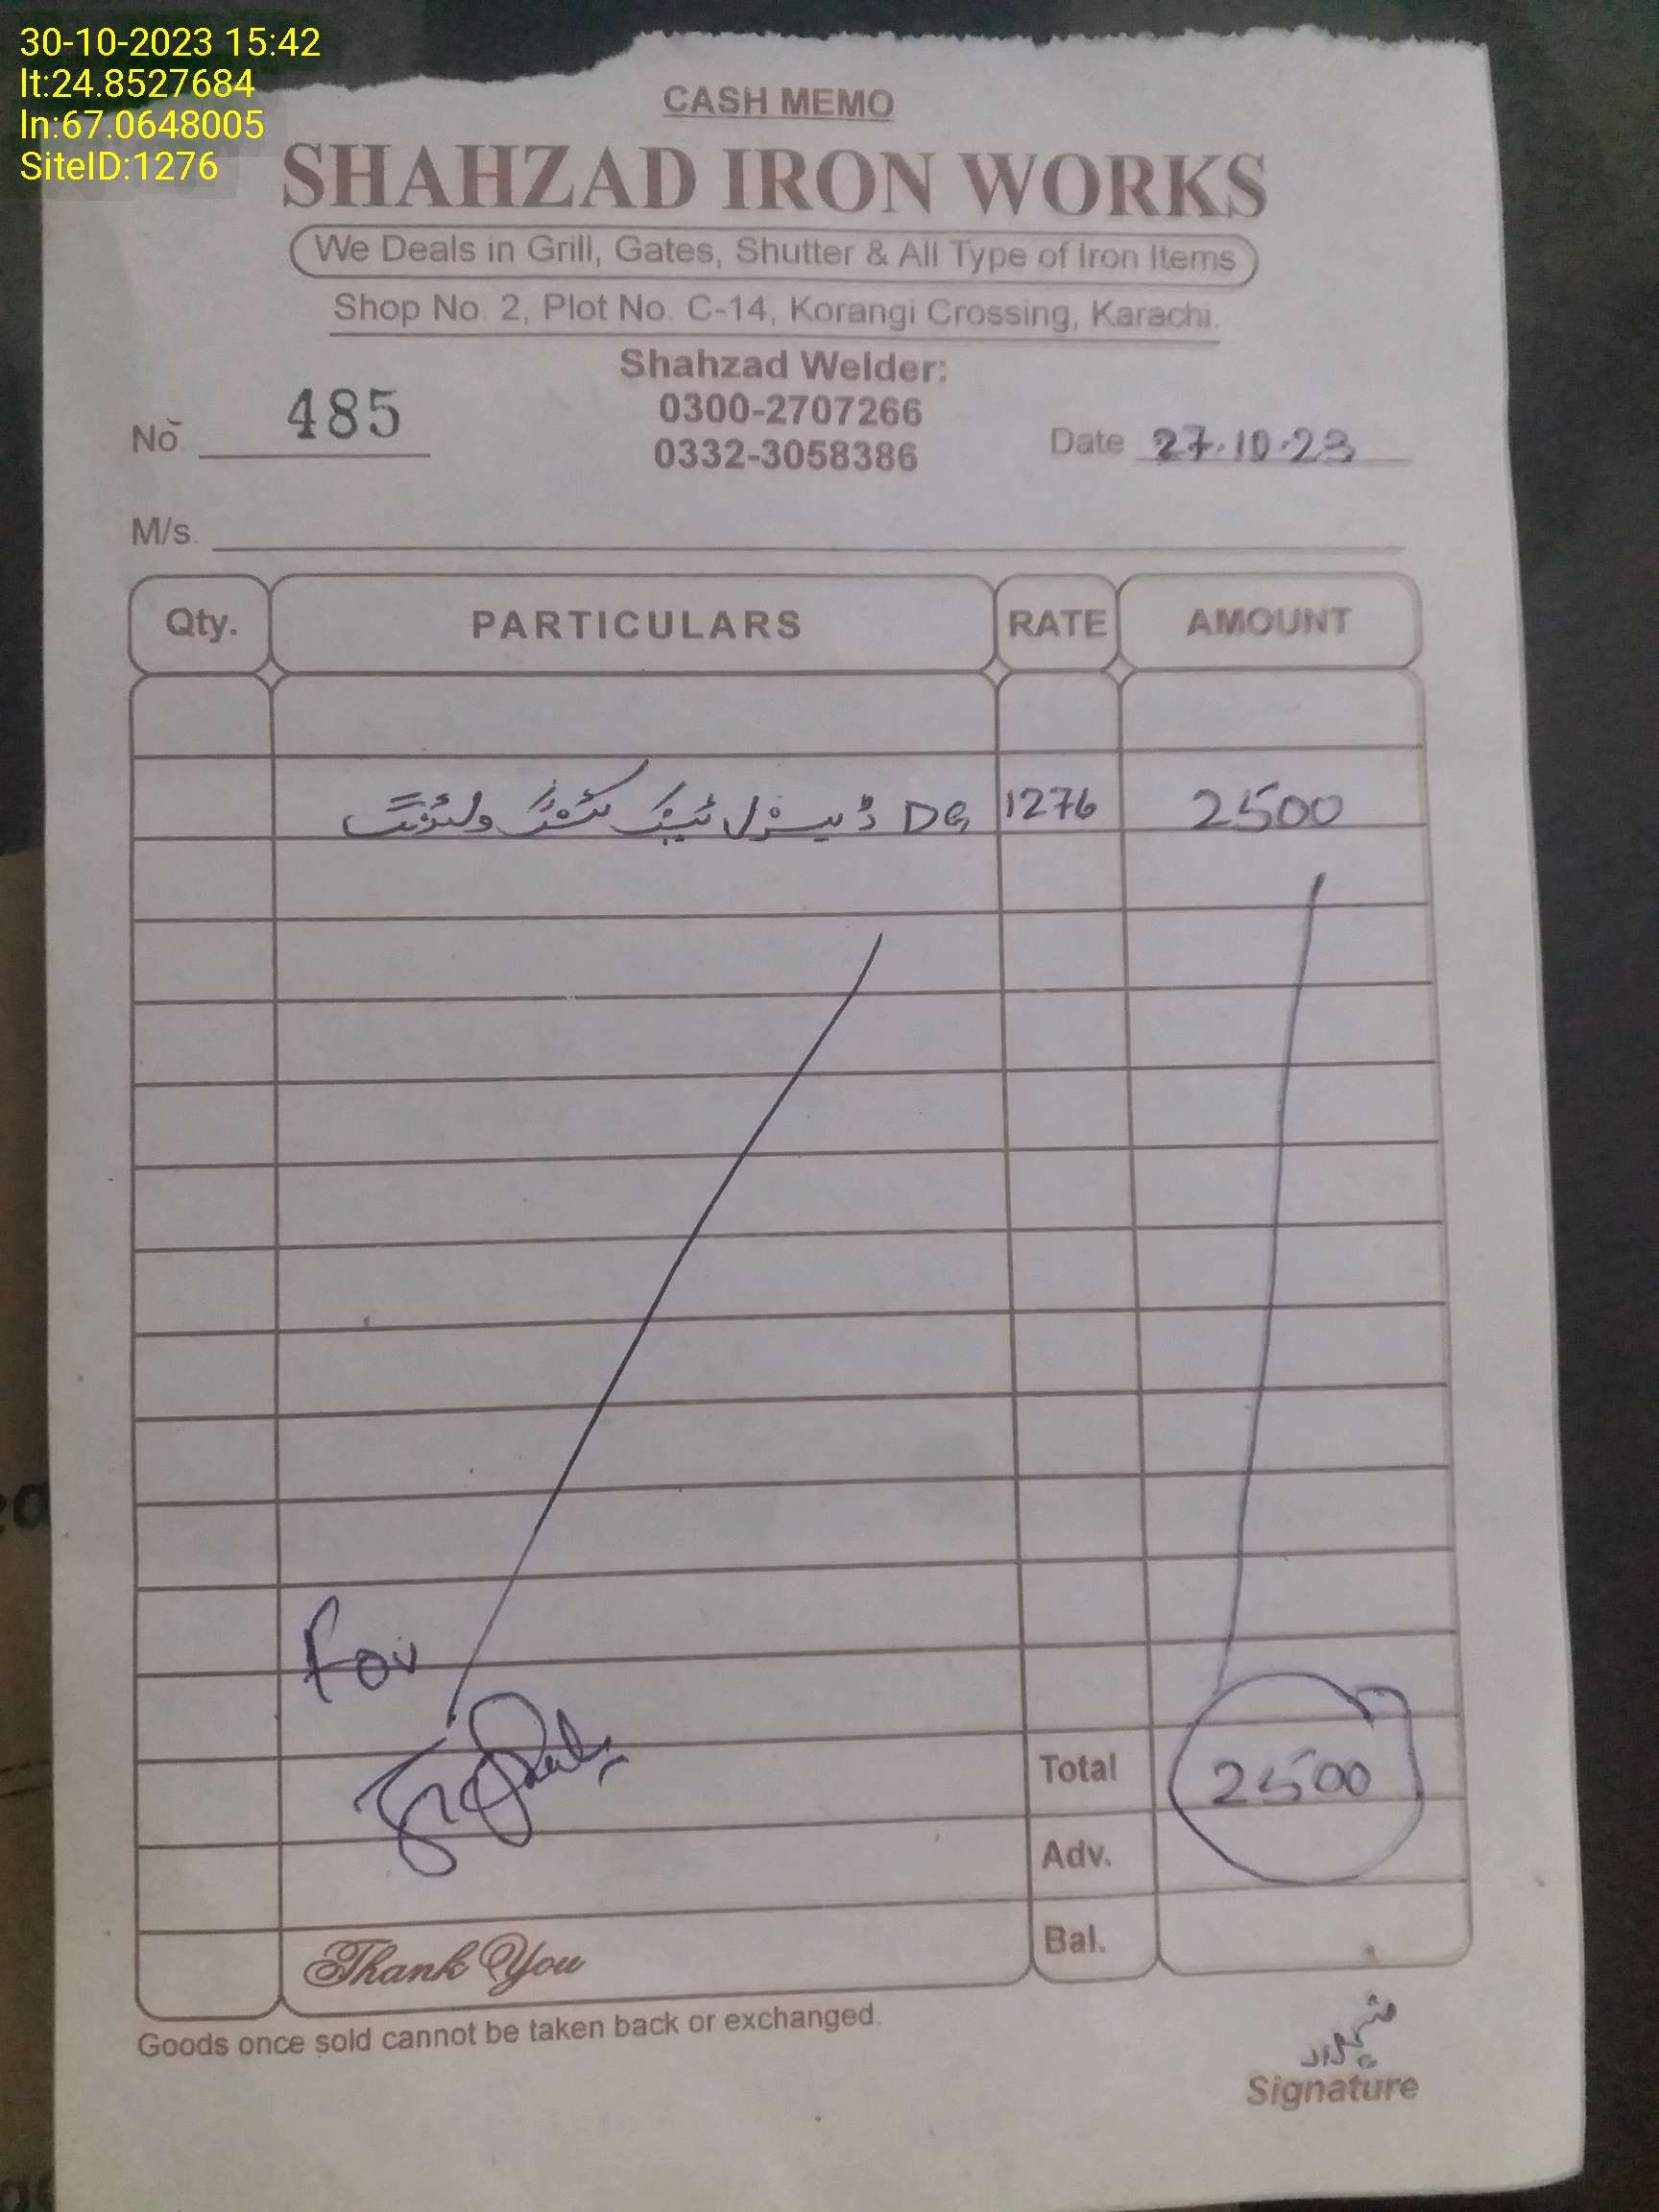 30-10-2023 15:42
lt:24.8527684
ln:67.0648005
SiteID:1276
CASH MEMO
SHAHZAD IRON WORKS
We Deals in Grill, Gates, Shutter & All Type of Iron Items
Shop No. 2, Plot No. C-14, Korangi Crossing, Karachi.
Shahzad Welder:
0300-2707266
0332-3058386
No. 485
Date 27.10.23
M/s.
Qty. PARTICULARS RATE AMOUNT
DG ڈیزل ٹینک 1276 2500
For
Total 2500
Adv.
Bal.
Thank You
Goods once sold cannot be taken back or exchanged.
Signature